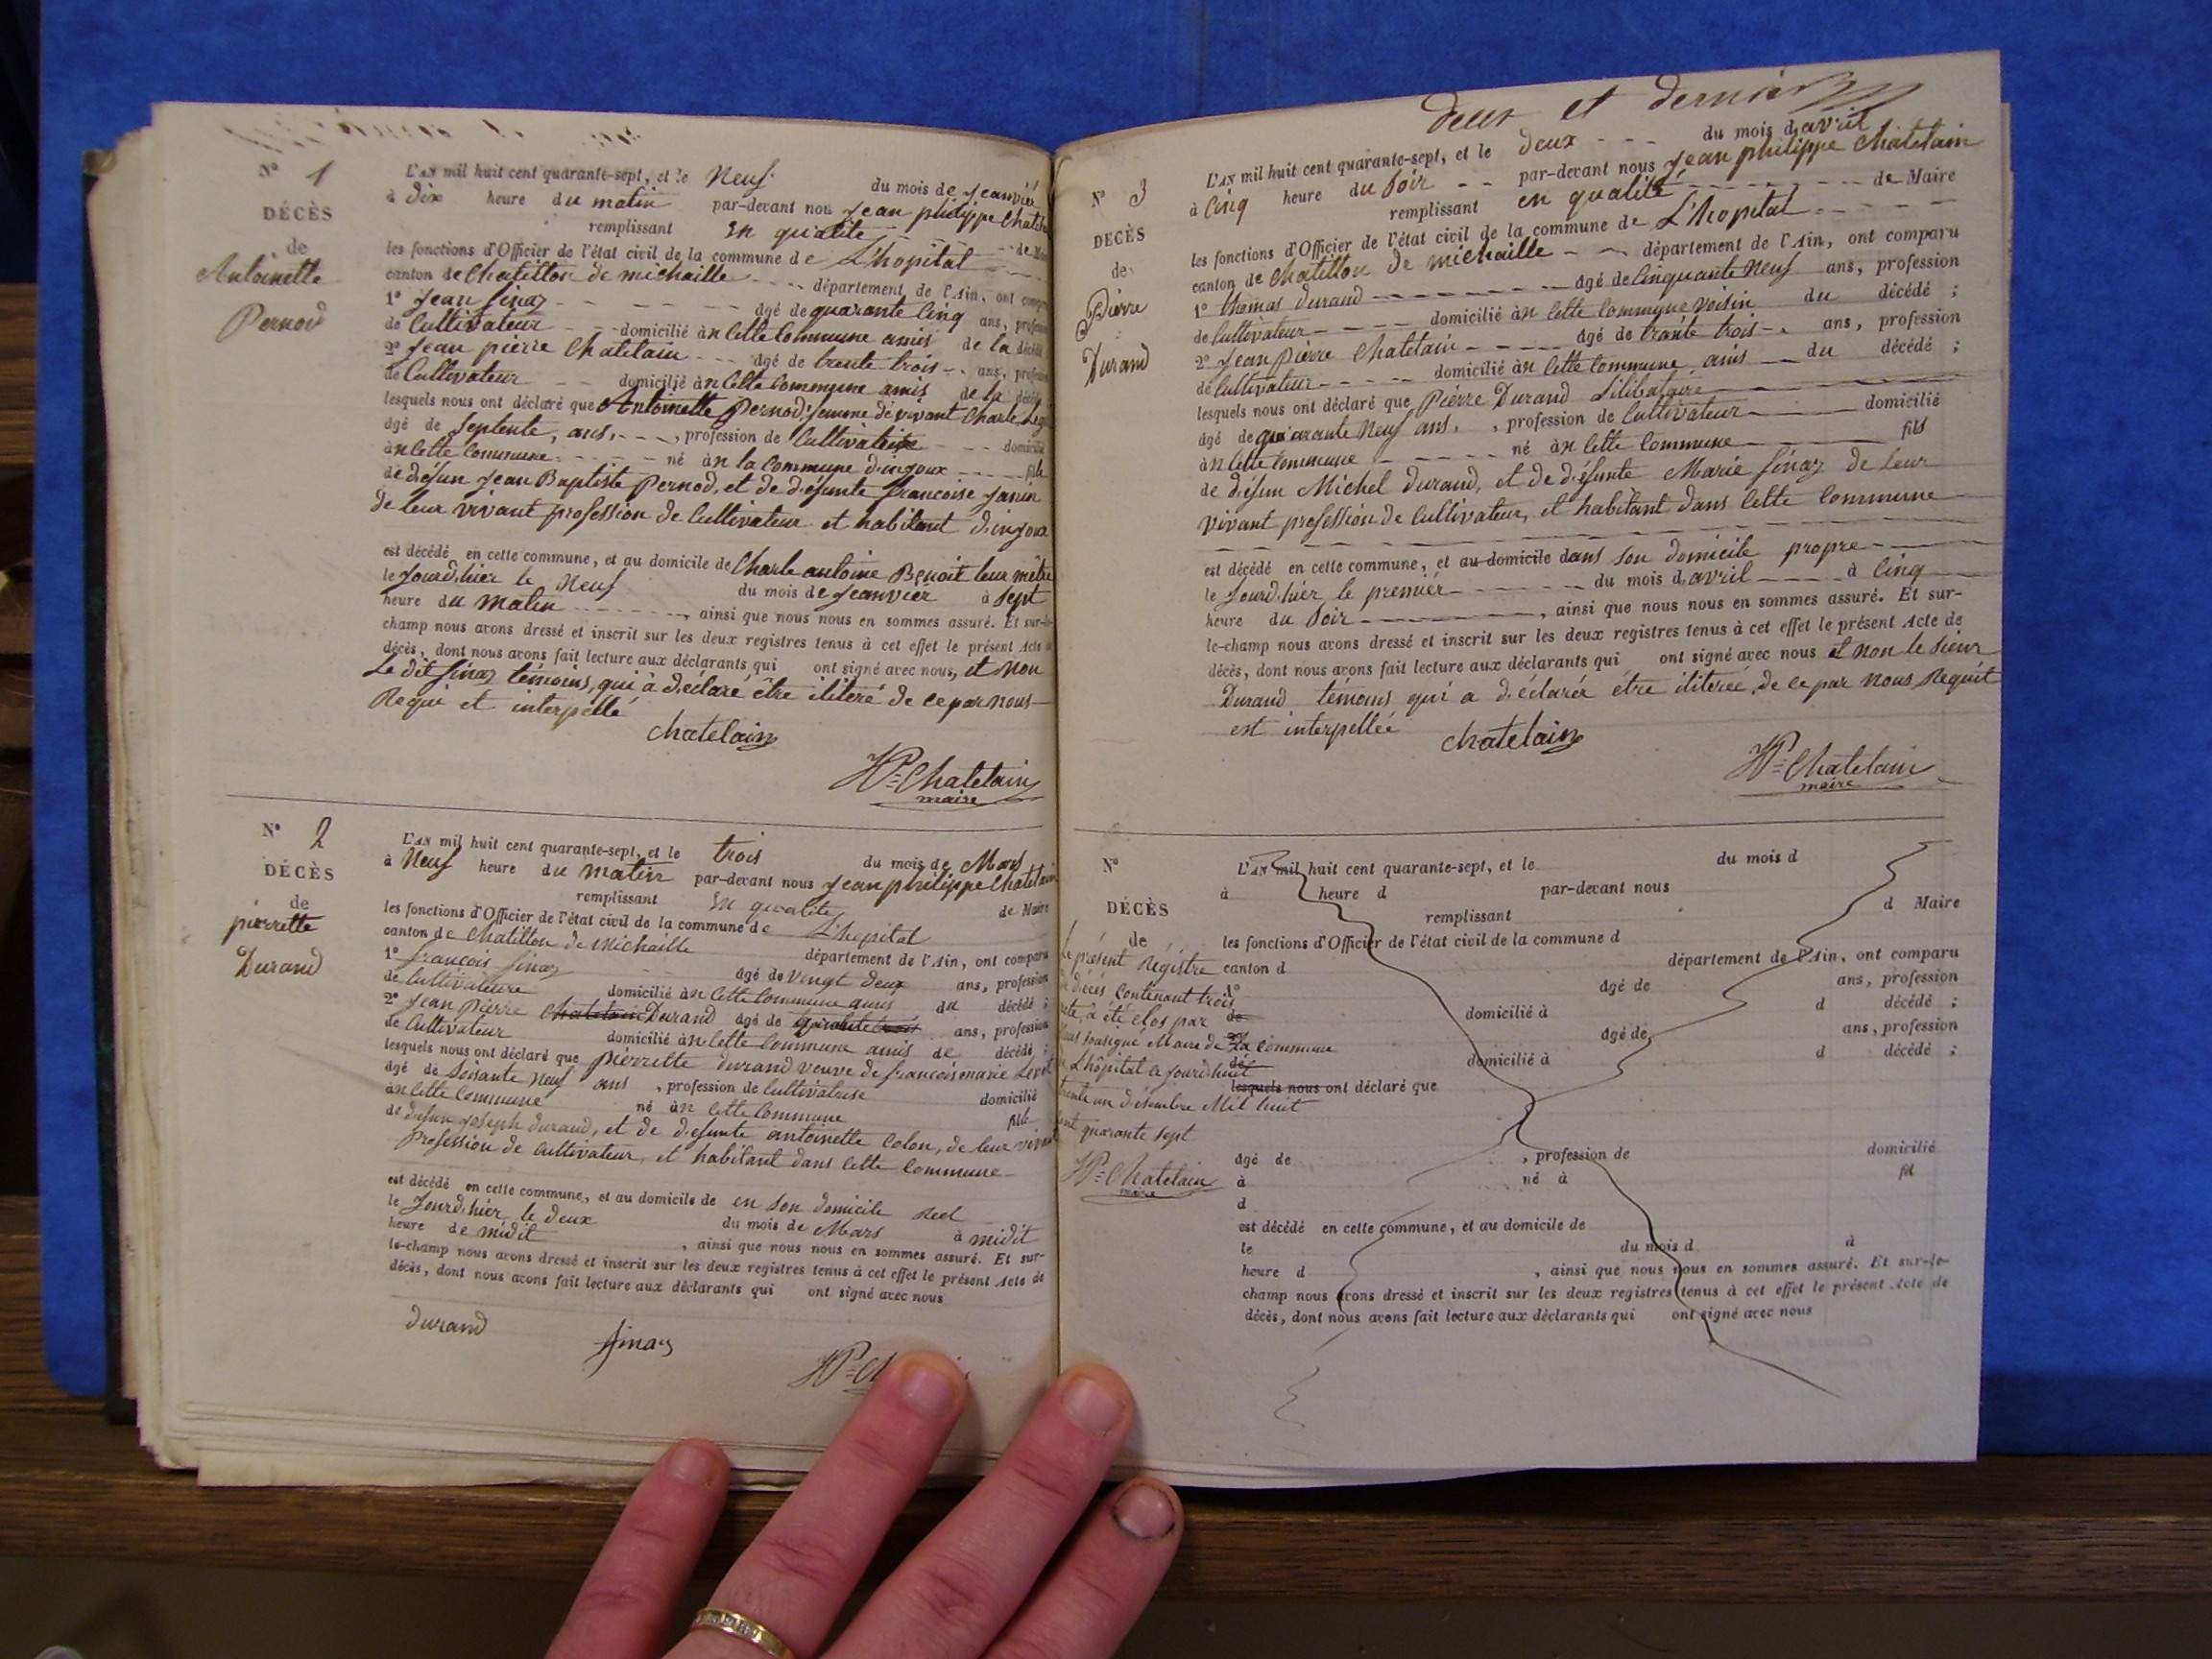 N° 1
DÉCÈS
de
Antoinette
Pernod
L'AN mil huit cent quarante-sept, et le Neuf du mois de Jeanvier
à dix heure du matin par-devant nou Jean philippe Chatelain
remplissant En qualité de Maire
les fonctions d'Officier de l'état civil de la commune de L'hopital
canton de Chatillon de michaille département de l'Ain, ont comparu
1° Jean Sinaz agé de quarante Cinq ans, profession
de Cultivateur domicilié àn Cette Commune amis de la décédé
2° Jean pierre Chatelain agé de trente trois ans, profession
de Cultivateur domicilié àn Cette Commune amis de la décédé
lesquels nous ont déclaré que Antoinette Pernod, femme de vivant Charle
âgé de Septente, ans, profession de Cultivatrise domicilié
àn Cette Commune né àn la Commune d'ingoux fille
de défun Jean Baptiste Pernod, et de défunte francoise Janin
de leur vivant profession de Cultivateur et habitant d'ingoux
est décédé en cette commune, et au domicile de Charle antoine Benoit leur mêtre
le Jourd,hier le Neuf du mois de Jeanvier à Sept
heure du matin, ainsi que nous nous en sommes assuré. Et sur-le-
champ nous avons dressé et inscrit sur les deux registres tenus à cet effet le présent Acte de
décès, dont nous avons fait lecture aux déclarants qui ont signé avec nous, et non
Le dit Sinaz témoins, qui à déclaré être iliteré de ce par nous
Requi et interpellé
chatelain
JP= Chatelain
maire
N° 2
DÉCÈS
de
pierrette
Durand
L'AN mil huit cent quarante-sept, et le trois du mois de Mars
à Neuf heure du matin par-devant nous Jean philippe Chatelain
remplissant En qualité de Maire
les fonctions d'Officier de l'état civil de la commune de L'hopital
canton de Chatillon de Michaille département de l'Ain, ont comparu
1° francois Sinaz agé de vingt deux ans, profession
de Cultivateure domicilié àn Cette Commune amis du décédé ;
2° Jean Pierre Chatelain Durand agé de ans, profession
de Cultivateur domicilié àn Cette Commune amis de décédé ;
lesquels nous ont déclaré que pierrette durand veuve de francois marie
âgé de Soisante Neuf ans, profession de Cultivatrise domicilié
àn Cette Commune né àn Cette Commune fille
de defun Joseph durand, et de defunte antoinette Colon, de leur vivant
Profession de Cultivateur, et habitant dans Cette Commune
est décédé en cette commune, et au domicile de en Son domicile Reel
le Jourd,hier le deux du mois de Mars à midit
heure de midit, ainsi que nous nous en sommes assuré. Et sur-
le-champ nous avons dressé et inscrit sur les deux registres tenus à cet effet le présent Acte de
décès, dont nous avons fait lecture aux déclarants qui ont signé avec nous
durand
Sinaz
JP=
deux et dernier
N° 3
DÉCÈS
de
Pierre
Durand
L'AN mil huit cent quarante-sept, et le deux du mois d'avril
à Cinq heure du Soir par-devant nous Jean philippe Chatelain
remplissant en qualité de Maire
les fonctions d'Officier de l'état civil de la commune de L'hopital
canton de Chatillon de michaille département de l'Ain, ont comparu
1° thomas durand agé de Cinquante Neuf ans, profession
de Cultivateur domicilié àn Cette Commune voisin du décédé ;
2° Jean Pierre Chatelain agé de trante trois ans, profession
de Cultivateur domicilié àn Cette Commune amis du décédé ;
lesquels nous ont déclaré que Pierre Durand Silibataire
âgé de quarante Neuf ans, profession de Cultivateur domicilié
àn Cette Commune né àn Cette Commune fils
de défun Michel durand, et de défunte Marie Sinaz de leur
vivant profession de Cultivateur, et habitant dans Cette Commune
est décédé en cette commune, et au domicile dans son domicile propre
le Jourd,hier le premier du mois d'avril à Cinq
heure du Soir, ainsi que nous nous en sommes assuré. Et sur-
le-champ nous avons dressé et inscrit sur les deux registres tenus à cet effet le présent Acte de
décès, dont nous avons fait lecture aux déclarants qui ont signé avec nous et non le Sieur
Durand témoins qui a déclarér être iliterée, de ce par nous Requit
est interpellée
chatelain
JP= Chatelain
maire
N°
DÉCÈS
de
L'AN mil huit cent quarante-sept, et le du mois d
à heure d par-devant nous
remplissant d Maire
les fonctions d'Officier de l'état civil de la commune d
canton d département de l'Ain, ont comparu
1° agé de ans, profession
de domicilié à d décédé ;
2° agé de ans, profession
de domicilié à d décédé ;
lesquels nous ont déclaré que
âgé de , profession de domicilié
à né à fil
d
est décédé en cette commune, et au domicile de
le du mois d à
heure d , ainsi que nous nous en sommes assuré. Et sur-le-
champ nous avons dressé et inscrit sur les deux registres tenus à cet effet le présent Acte de
décès, dont nous avons fait lecture aux déclarants qui ont signé avec nous
Le présent Régistre
de décès Contenant trois
acte, à été clos par
Nous sousigné Maire de La Commune
de L'hôpital ce jourd'huit
trente un désembre Mil huit
cent quarante sept
JP= Chatelain
maire